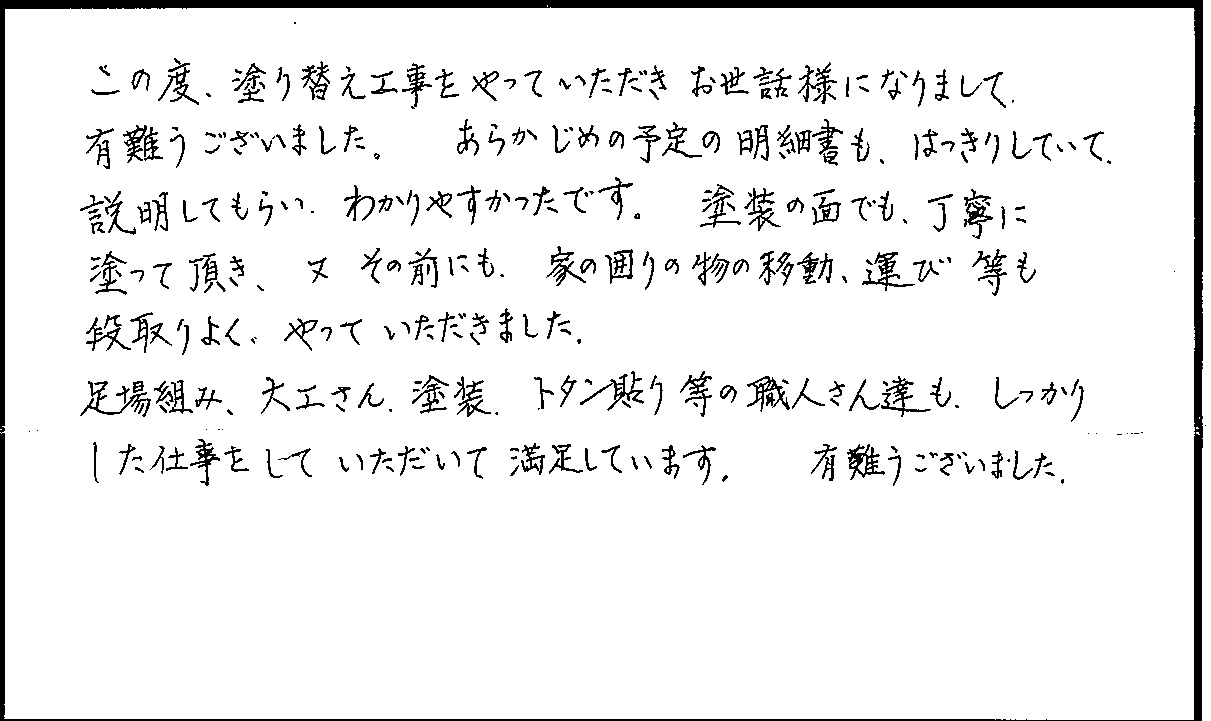 この度、塗り替え工事をやっていただきお世話様になりまして、
有難うございました。　あらかじめの予定の明細書も、はっきりしていて、
説明してもらい、わかりやすかったです。　塗装の面でも、丁寧に
塗って頂き、又その前にも、家の囲りの物の移動、運び等も
段取りよく、やっていただきました。
足場組み、大工さん、塗装、トタン貼り等の職人さん達も、しっかり
した仕事をしていただいて満足しています。　有難うございました。